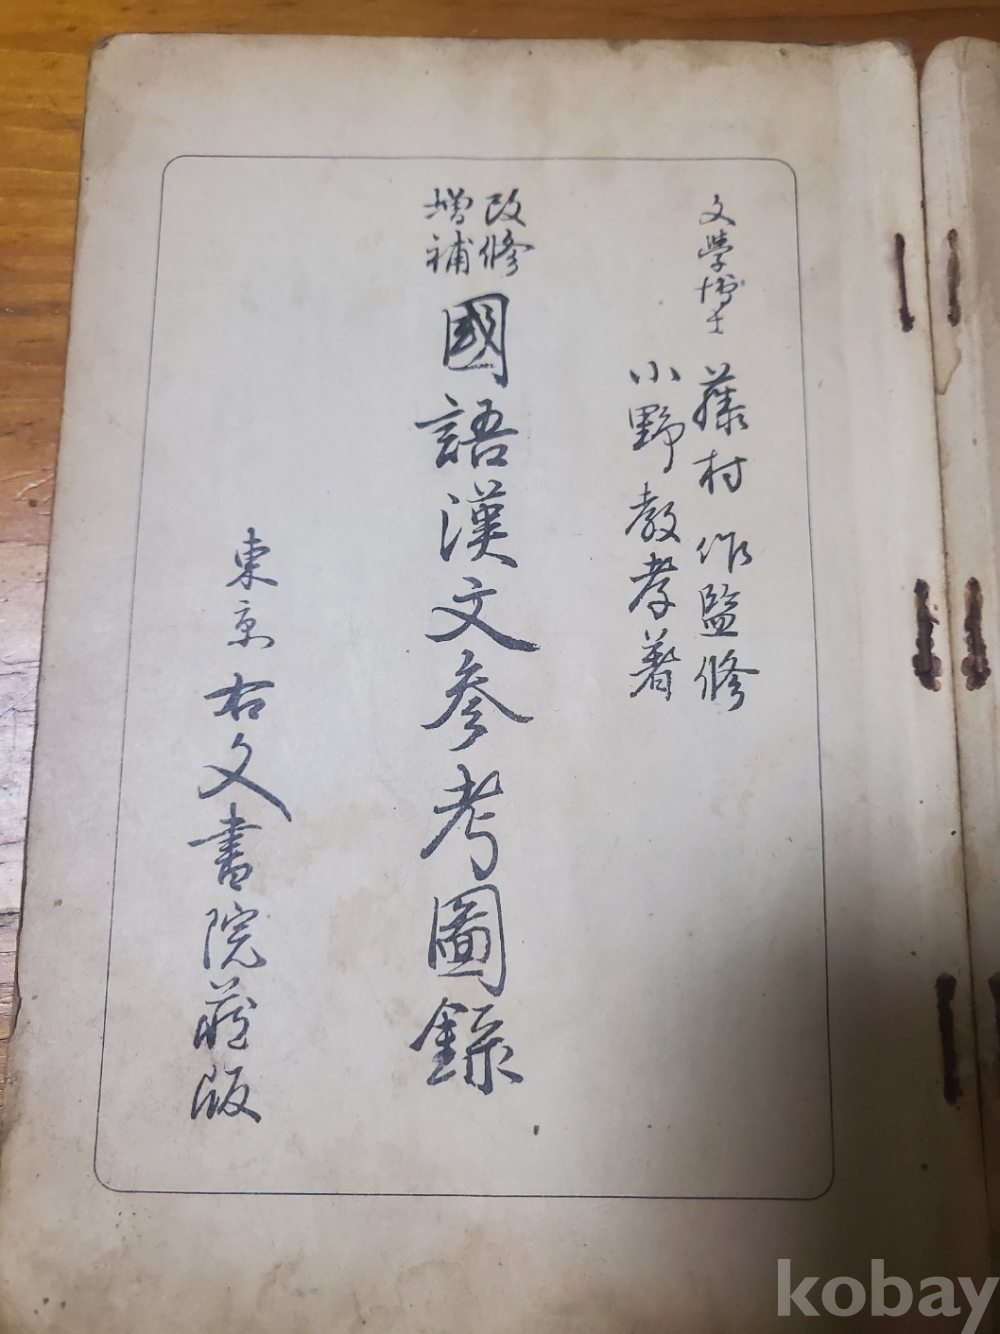 文學博士 藤村 作監修
小野教孝著
改修
增補
國語漢文參考圖錄
東京 右文書院藏版
kobay